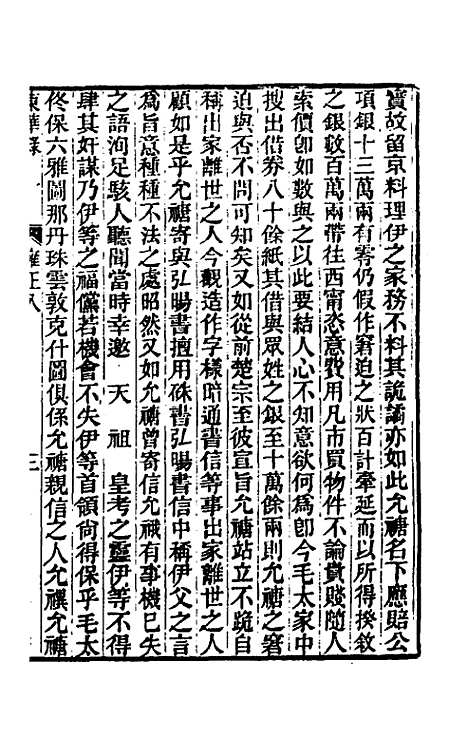 實故留京料理伊之家務不料其詭譎亦如此允禟名下應賠公
項銀十三萬兩有零仍假作窘迫之狀百計牽延而以所得揆敘
之銀數百萬兩帶往西甯恣意費用凡市買物件不論貴賤隨人
索價卽如數與之以此要結人心不知意欲何爲卽今毛太家中
搜出借券八十餘紙其借與眾姓之銀至十萬餘兩允禟之窘
迫與否不問可知矣又如從前楚宗至彼宣旨允禟站立不跪自
稱出家離世之人今觀造作字樣暗通書信等事出家離世之人
顧如是乎允禟寄與弘暘書擅用硃書弘暘書信中稱伊父之言
爲旨意種種不法之處昭然又如允禟曾寄信允䄉有事機已失
之語洵足駭人聽聞當時幸邀　天　祖　皇考之靈伊等不得
肆其奸謀乃伊等之福儻若機會不失伊等首領尚得保乎毛太
佟保六雅圖那丹珠雲敦克什圖俱係允禟親信之人允禩允禟
東華錄　雍正八　三